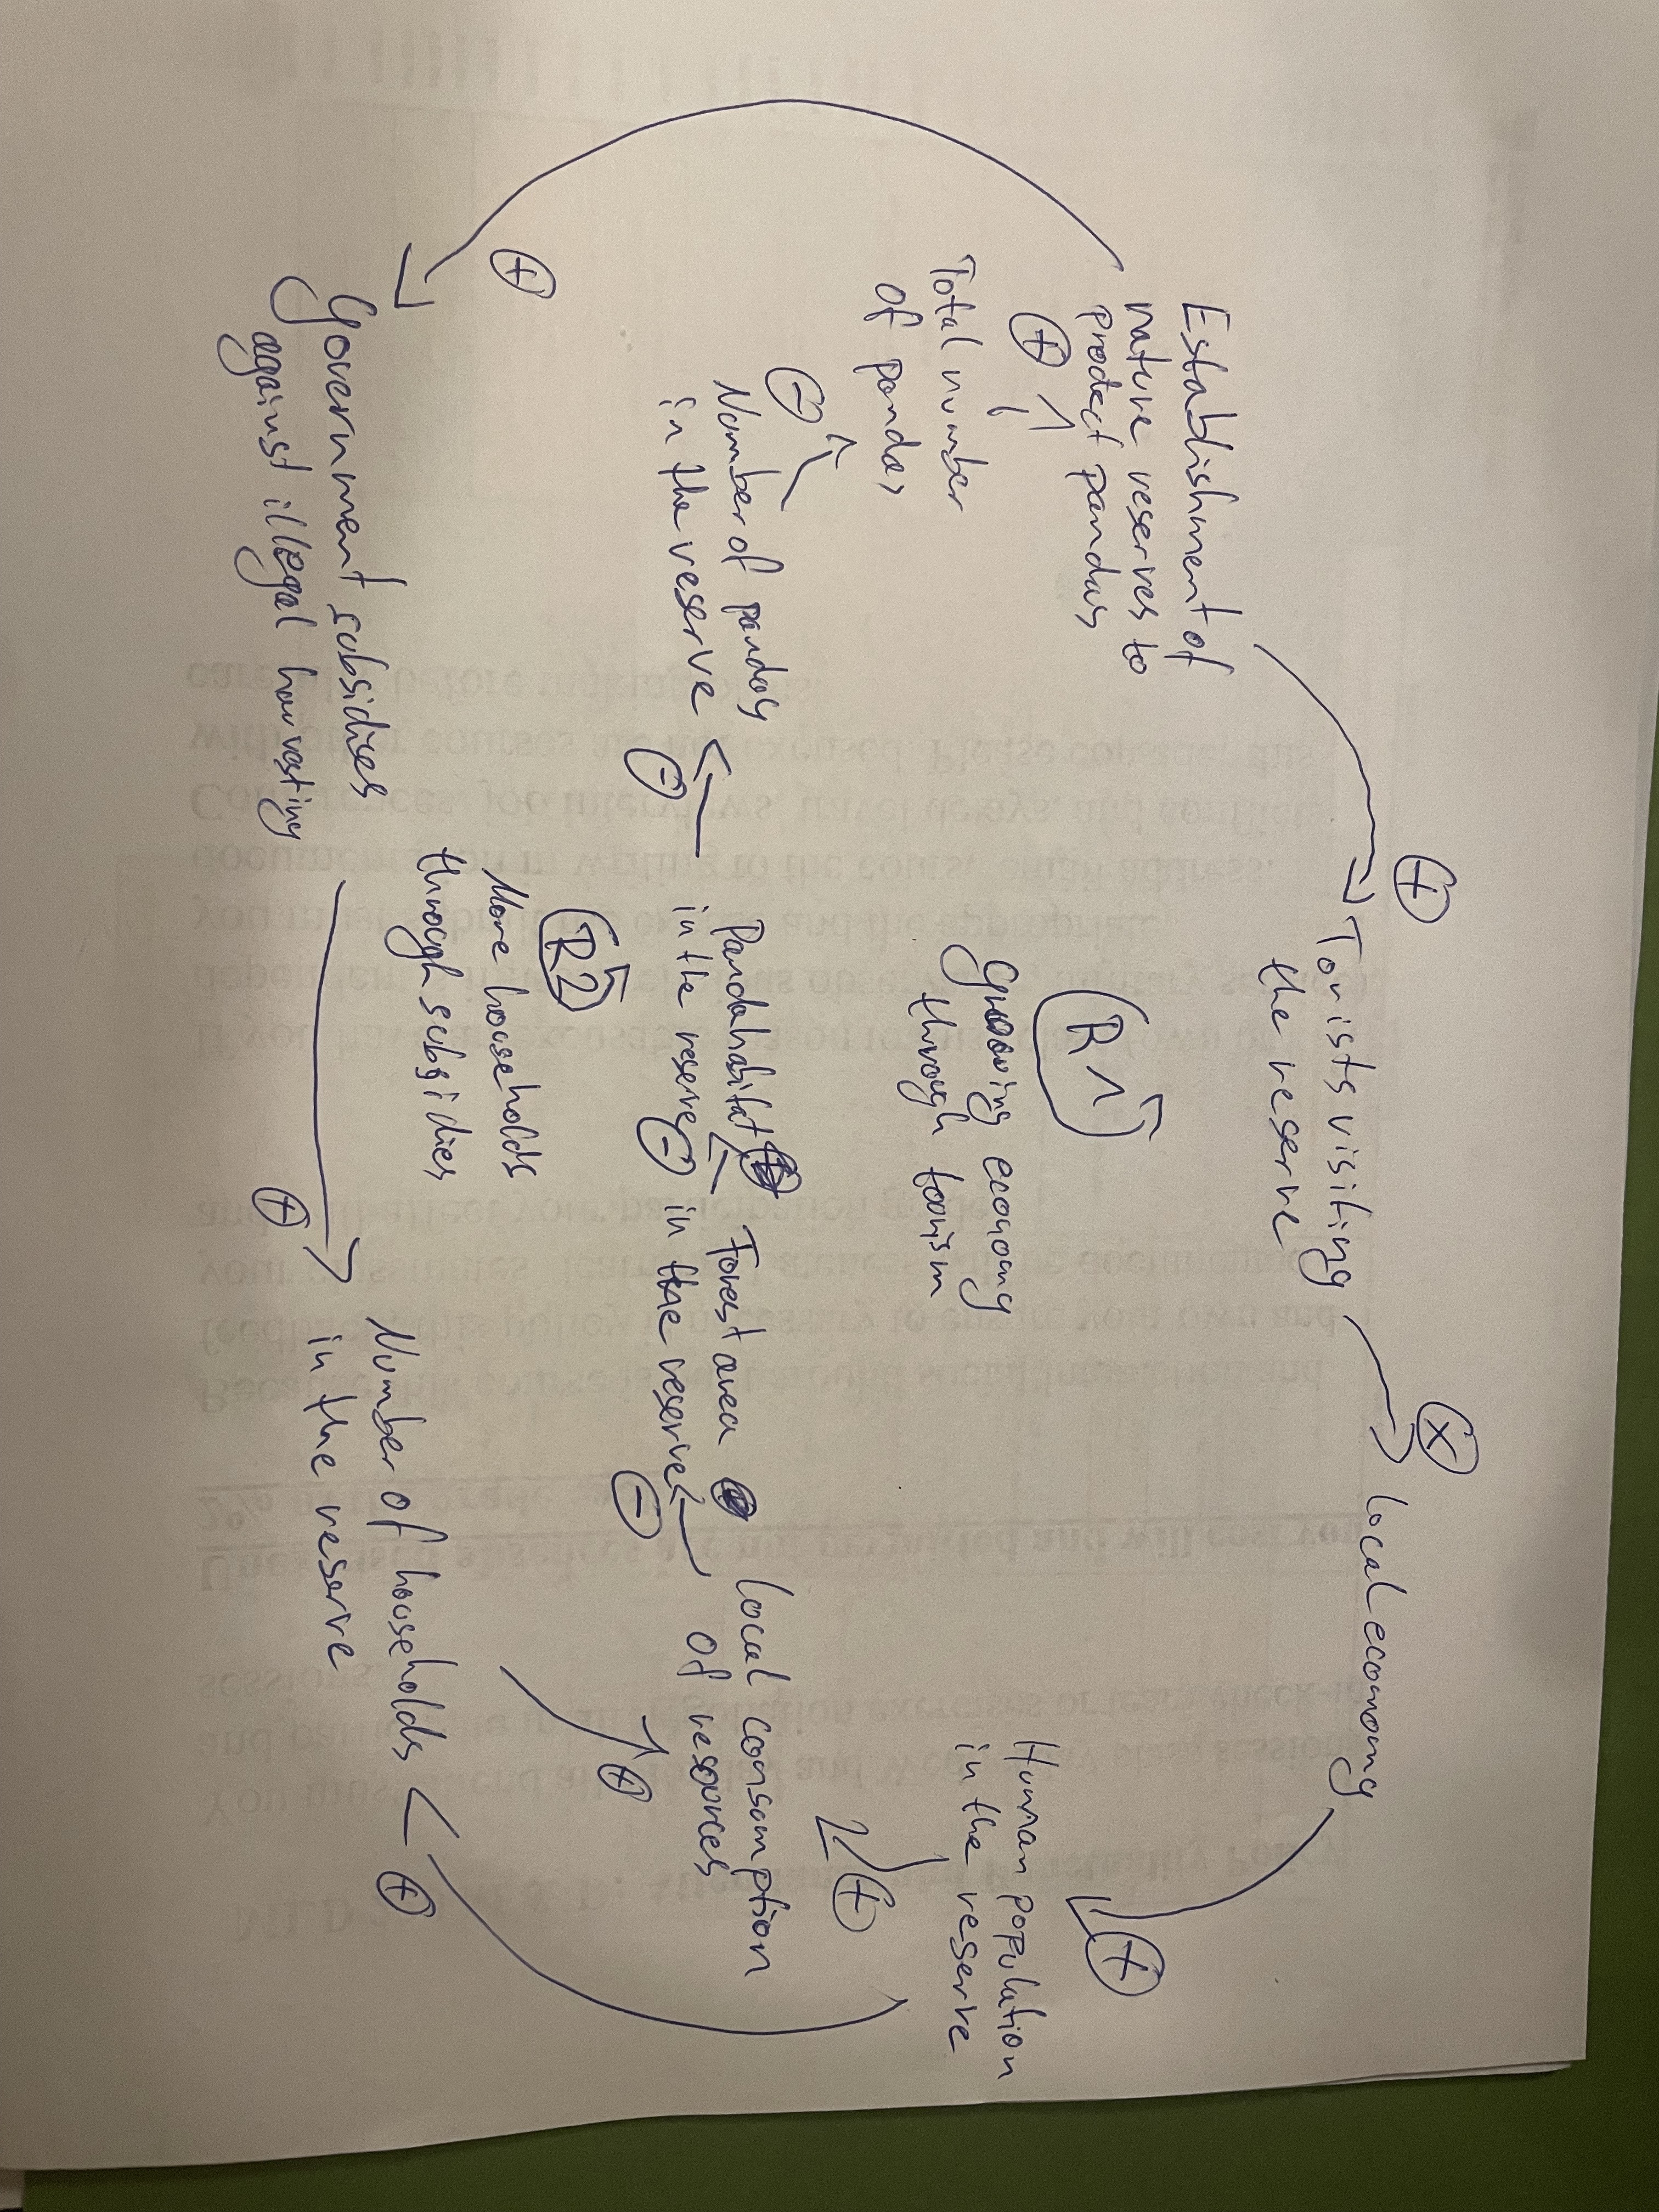 ⊕
⊗
Torists visiting
the reserve
local economy
Establishment of
nature reserves to
protect pandas
⊕
R1
Growing economy
through tourism
⊕
Human population
in the reserve
⊕
Total number
of pandas
⊖
⊕
Number of pandas
in the reserve
⊖
Panda habitat
in the reserve
⊖
Forest area
in the reserve
⊖
local consumption
of resources
⊕
⊕
R2
More households
through subsidies
Government subsidies
against illegal harvesting
⊕
Number of households
in the reserve
⊕